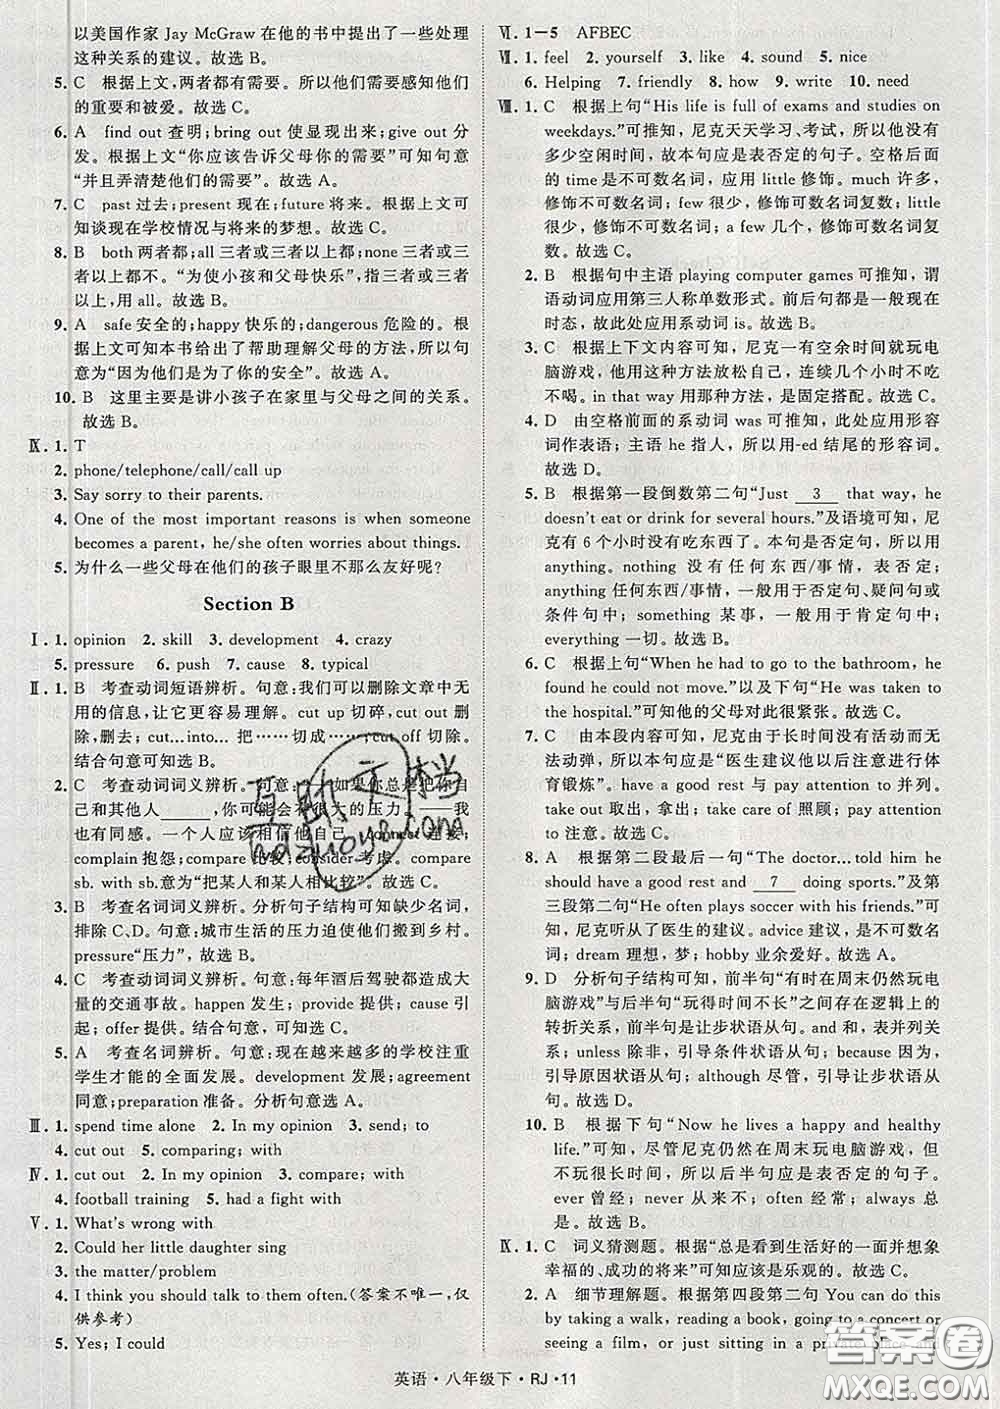 以美国作家 Jay McGraw 在他的书中提出了一些处理
这种关系的建议。故选 B。
5. C 根据上文,两者都有需要。所以他们需要感到他们
的重要和被爱。故选 C。
6. A find out 查明;bring out 使显现出来;give out 分
发。根据上文“你应该告诉父母你的需要”可知句意
“并且弄清楚他们的需要”。故选 A。
7. C past 过去;present 现在;future 将来。根据上文可
知谈现在学校情况与将来的梦想。故选 C。
8. B both 两者都;all 三者或三者以上都;none 三者或三
者以上都不。“为使小孩和父母快乐”,指三者或三者
以上,用 all。故选 B。
9. A safe 安全的;happy 快乐的;dangerous 危险的。根
据上文可知本书给出了帮助理解父母的方法,所以句
意为“因为他们是为了你的安全”。故选 A。
10. B 这里主要是讲小孩子在家里与父母之间的关系。
故选 B。
Ⅸ. 1. T
2. phone/telephone/call/call up
3. Say sorry to their parents.
4. One of the most important reasons is when someone
becomes a parent, he/she often worries about things.
5. 为什么一些父母在他们的孩子眼里不那么友好呢?
Section B
Ⅰ. 1. opinion 2. skill 3. development 4. crazy
5. pressure 6. push 7. cause 8. typical
Ⅱ. 1. B 考查动词短语辨析。句意:我们可以删除文章中无
用的信息,让它更容易理解。cut up 切碎,cut out 删
除,删去;cut…into… 把……切成……;cut off 切除。
结合句意可知选 B。
2. C 考查动词词义辨析。句意:——如果你总是把你自
己和其他人____,你可能会有很大的压力。——我
也有同感。一个人应该相信他自己。connect 连接;
complain 抱怨;compare 比较;consider 考虑。compare
sb. with sb.意为“把某人和某人相比较”。故选 C。
3. B 考查名词词义辨析。分析句子结构可知缺少名词,
排除 C、D。句意:城市生活的压力迫使他们搬到乡村。
pressure“压力”,故选 B。
4. C 考查动词词义辨析。句意:每年酒后驾驶都造成大
量的交通事故。happen 发生;provide 提供;cause 引
起;offer 提供。结合句意,可知选 C。
5. A 考查名词辨析。句意:现在越来越多的学校注重
学生才能的全面发展。development 发展;agreement
同意;preparation 准备。分析句意选 A。
Ⅲ. 1. spend time alone 2. In my opinion 3. send; to
4. cut out 5. comparing; with
Ⅳ. 1. cut out 2. In my opinion 3. compare; with
4. football training 5. had a fight with
Ⅴ. 1. What's wrong with
2. Could her little daughter sing
3. the matter/problem
4. I think you should talk to them often.(答案不唯一,仅
供参考)
5. Yes; I could
Ⅵ. 1—5 AFBEC
Ⅶ. 1. feel 2. yourself 3. like 4. sound 5. nice
6. Helping 7. friendly 8. how 9. write 10. need
Ⅷ. 1. C 根据上句“His life is full of exams and studies on
weekdays.”可推知,尼克天天学习、考试,所以他没有
多少空闲时间,故本句应是表否定的句子。空格后面
的 time 是不可数名词,应用 little 修饰。much 许多,
修饰不可数名词;few 很少,修饰可数名词复数;little
很少,修饰不可数名词;a few 几个,修饰可数名词复
数。故选 C。
2. B 根据句中主语 playing computer games 可推知,谓
语动词应用第三人称单数形式。前后句都是一般现在
时态,故此处应用系动词 is。故选 B。
3. C 根据上下文内容可知,尼克一有空余时间就玩电
脑游戏,他用这种方法放松自己,连续几个小时不吃
不喝。in that way 用那种方法,是固定搭配。故选 C。
4. D 由空格前面的系动词 was 可推知,此处应用形容
词作表语;主语 he 指人,所以用-ed 结尾的形容词。
故选 D。
5. B 根据第一段倒数第二句“Just __3__ that way, he
doesn't eat or drink for several hours.”及语境可知,尼
克有 6 个小时没有吃东西了。本句是否定句,所以用
anything。nothing 没有任何东西/事情,表否定;
anything 任何东西/事情,一般用于否定句、疑问句或
条件句中;something 某事,一般用于肯定句中;
everything 一切。故选 B。
6. C 根据上句“When he had to go to the bathroom, he
found he could not move.”以及下句“He was taken to
the hospital.”可知他的父母对此很紧张。故选 C。
7. C 由本段内容可知,尼克由于长时间没有活动而无
法动弹,所以此处应是“医生建议他应该注意进行体
育锻炼”。have a good rest 与 pay attention to 并列。
take out 取出,拿出;take care of 照顾;pay attention
to 注意。故选 C。
8. A 根据第二段最后一句“The doctor…told him he
should have a good rest and __7__ doing sports.”及第
三段第二句“He often plays soccer with his friends.”可
知,尼克听从了医生的建议。advice 建议,是不可数名
词;dream 理想,梦;hobby 业余爱好。故选 A。
9. D 分析句子结构可知,前半句“有时在周末仍然玩电
脑游戏”与后半句“玩得时间不长”之间存在逻辑上的
转折关系,前半句是让步状语从句。and 和,表并列关
系;unless 除非,引导条件状语从句;because 因为,
引导原因状语从句;although 尽管,引导让步状语从
句。故选 D。
10. B 根据下句“Now he lives a happy and healthy
life.”可知,尽管尼克仍然在周末玩电脑游戏,但不
玩很长时间,所以后半句应是表否定的句子。
ever 曾经;never 从来不;often 经常;always 总
是。故选 B。
Ⅸ. 1. C 词义猜测题。根据“总是看到生活好的一面并想象
幸福的、成功的将来”可知应该是乐观的。故选 C。
2. A 细节理解题。根据第四段第二句 You can do this
by taking a walk, reading a book, going to a concert or
seeing a film, or just sitting in a private place and
英语·八年级下·RJ·11
互助文档
hdzuoye.com
答案圈
MXQE.COM